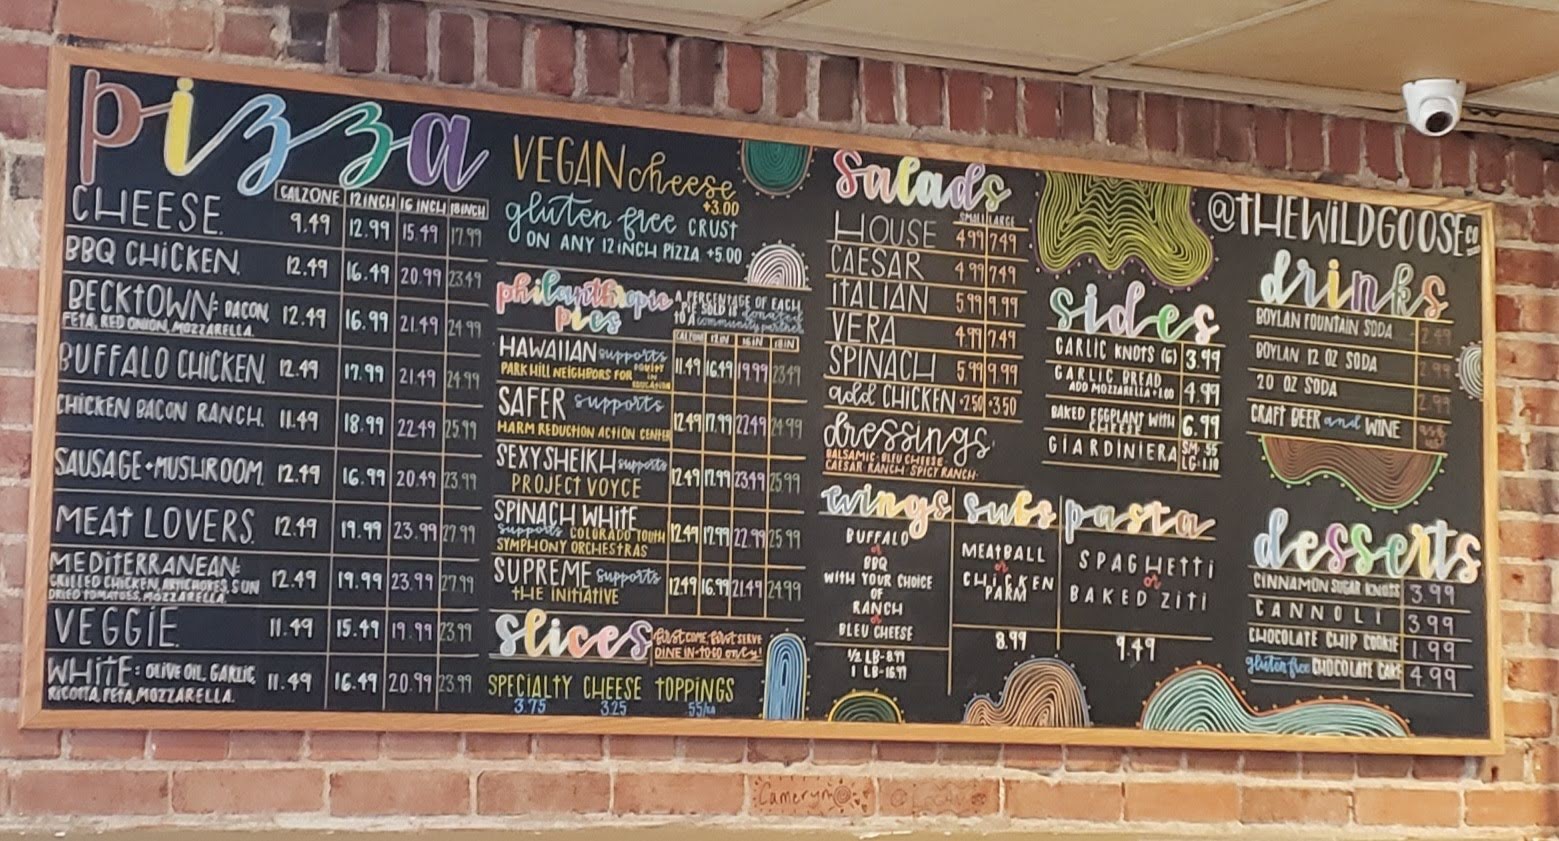 pizza
CALZONE 12 INCH 16 INCH 18 INCH
CHEESE 9.49 12.99 15.49 17.99
BBQ CHICKEN 12.49 16.49 20.99 23.49
BECKTOWN: BACON, 12.49 16.99 21.49 24.99
FETA, RED ONION, MOZZARELLA
BUFFALO CHICKEN 12.49 17.99 21.49 24.99
CHICKEN BACON RANCH 11.49 18.99 22.49 25.99
SAUSAGE+MUSHROOM 12.49 16.99 20.49 23.99
MEAT LOVERS 12.49 19.99 23.99 27.99
MEDITERRANEAN: 12.49 19.99 23.99 27.99
GRILLED CHICKEN, ARTICHOKES, SUN
DRIED TOMATOES, MOZZARELLA
VEGGIE 11.49 15.49 19.99 23.99
WHITE: OLIVE OIL, GARLIC, 11.49 16.49 20.99 23.99
RICOTTA, FETA, MOZZARELLA
VEGAN cheese
+3.00
gluten free CRUST
ON ANY 12 INCH PIZZA +5.00
philanthropic pies
A PERCENTAGE OF EACH
PIE SOLD IS donated
TO A community partner
CALZONE 12 IN 16 IN 18 IN
HAWAIIAN supports 11.49 16.49 19.99 23.49
PARK HILL NEIGHBORS FOR EQUITY IN EDUCATION
SAFER supports 12.49 17.99 22.49 24.99
HARM REDUCTION ACTION CENTER
SEXY SHEIKH supports 12.49 17.99 23.49 25.99
PROJECT VOYCE
SPINACH WHITE 12.49 17.99 22.99 25.99
supports COLORADO YOUTH
SYMPHONY ORCHESTRAS
SUPREME supports 12.49 16.99 21.49 24.99
THE INITIATIVE
slices
first COME, first SERVE
DINE IN+TO GO only!
SPECIALTY CHEESE TOPPINGS
3.75 3.25 .55/EA
Salads
SMALL LARGE
HOUSE 4.99 7.49
CAESAR 4.99 7.49
ITALIAN 5.99 9.99
VERA 4.99 7.49
SPINACH 5.99 9.99
add CHICKEN +2.50 +3.50
dressings:
BALSAMIC· BLEU CHEESE·
CAESAR· RANCH· SPICY RANCH·
wings
BUFFALO
or
BBQ
WITH YOUR CHOICE
OF
RANCH
or
BLEU CHEESE
½ LB-8.99
1 LB-16.99
subs
MEATBALL
or
CHICKEN
PARM
8.99
pasta
SPAGHETTI
or
BAKED ZITI
9.49
sides
GARLIC KNOTS (6) 3.99
GARLIC BREAD 4.99
ADD MOZZARELLA +1.00
BAKED EGGPLANT WITH 6.99
CHEESE
GIARDINIERA SM: .55
LG: 1.10
@THEWILDGOOSECO
drinks
BOYLAN FOUNTAIN SODA 2.49
BOYLAN 12 OZ SODA 2.99
20 OZ SODA 2.99
CRAFT BEER and WINE
desserts
CINNAMON SUGAR KNOTS 3.99
CANNOLI 3.99
CHOCOLATE CHIP COOKIE 1.99
gluten free CHOCOLATE CAKE 4.99
Camerynn